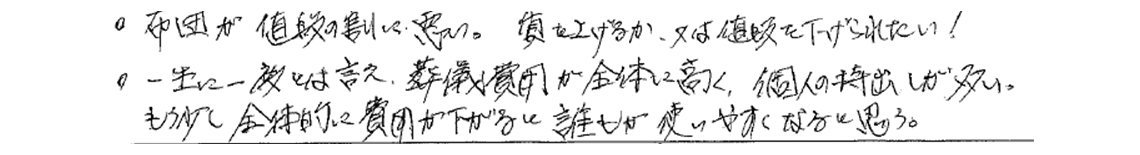 ○ 布団が値段の割に悪い。質を上げるか、又は値段を下げられたい！
○ 一生に一度とは言え、葬儀費用が全体に高く、個人の持出しが多い。
もう少し全体的に費用が下がると誰もが使いやすくなると思う。